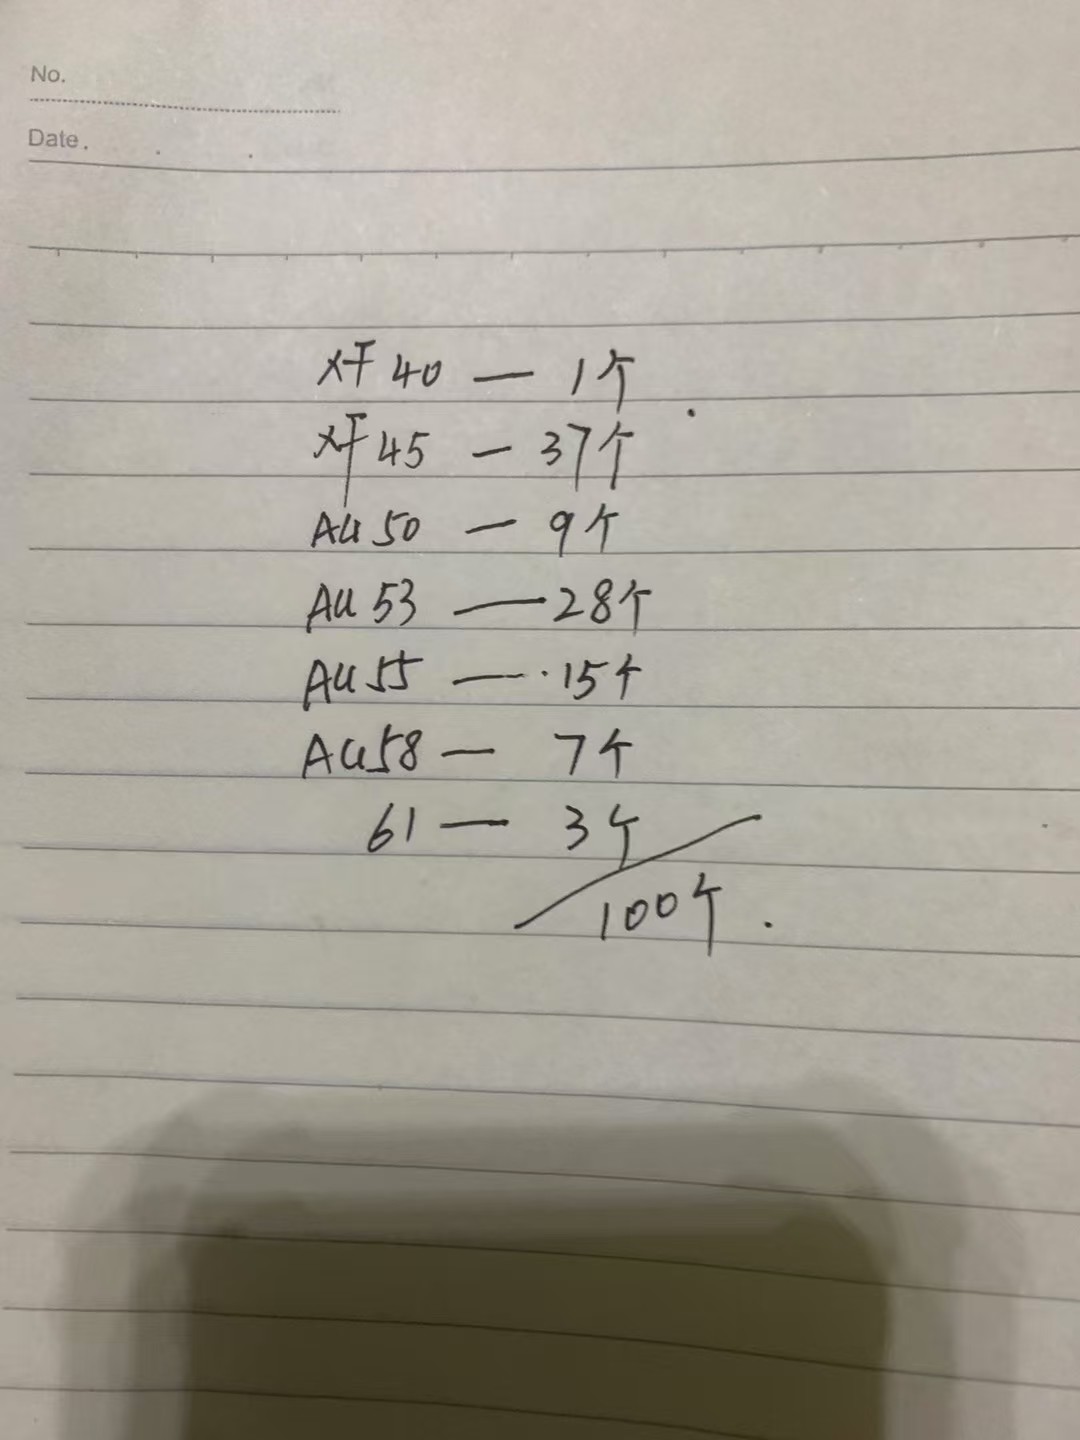 No.
Date.
XF 40 — 1个
XF 45 — 37个
AU 50 — 9个
AU 53 — 28个
AU 55 — 15个
AU 58 — 7个
61 — 3个
100个.